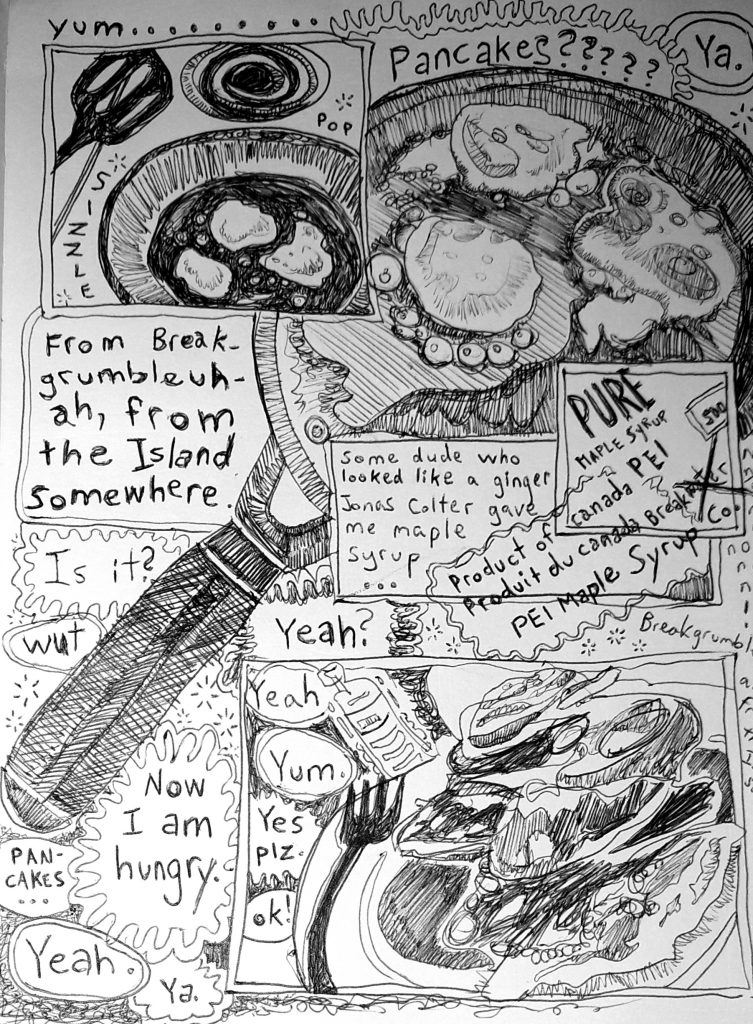 yum..........
Pancakes?????
Ya.
POP
SIZZLE
From Break-
grumbleuh-
ah, from
the Island
somewhere.
PURE
MAPLE SYRUP
PEI
500
some dude who
looked like a ginger
Jonas Colter gave
me maple
syrup
...
Product of Canada
Produit du Canada
Co.
PEI Maple Syrup
Is it?
wut
Yeah?
Breakgrumbl
Yeah
Yum.
Yes
plz.
ok!
Now
I am
hungry.
PAN-
CAKES
...
Yeah.
Ya.